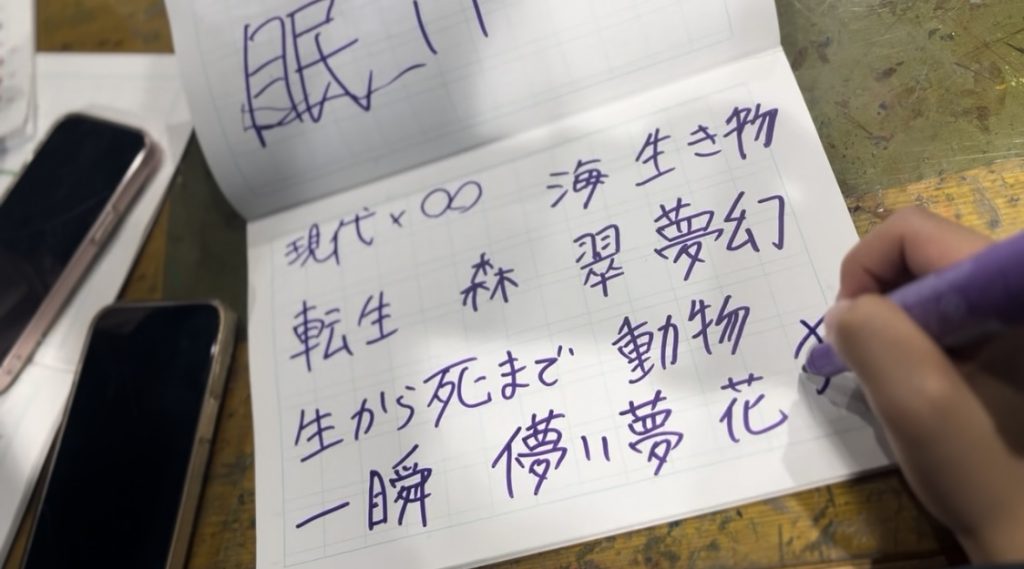 眠
現代×∞ 海 生き物
転生 森 翠 夢幻
生から死まで 動物
一瞬 儚い夢 花